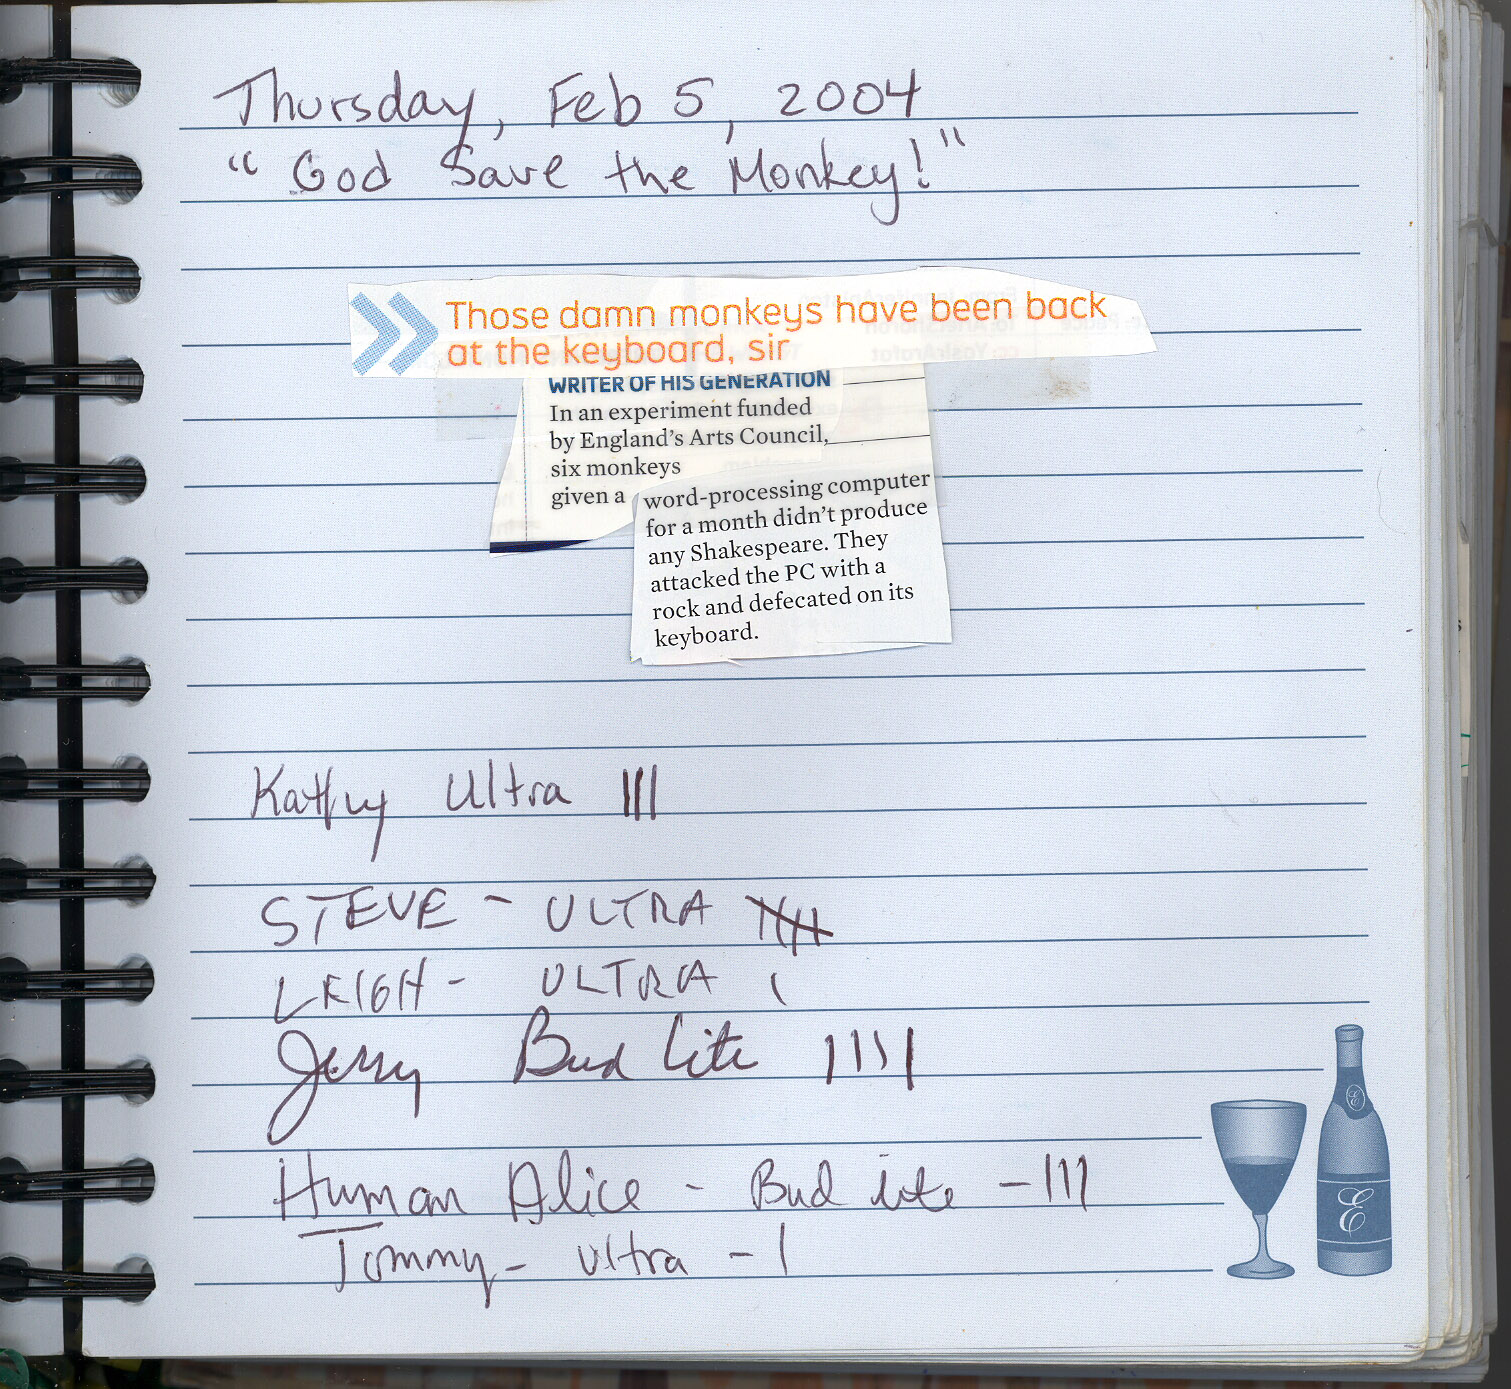 Thursday, Feb 5, 2004
"God Save the Monkey!"
Those damn monkeys have been back
at the keyboard, sir
WRITER OF HIS GENERATION
In an experiment funded
by England's Arts Council,
six monkeys
given a word-processing computer
for a month didn't produce
any Shakespeare. They
attacked the PC with a
rock and defecated on its
keyboard.
Kathy Ultra |||
STEVE - ULTRA
LEIGH - ULTRA |
Jerry Bud Lite ||||
Human Alice - Bud lite - |||
Tommy - Ultra - |
E
E